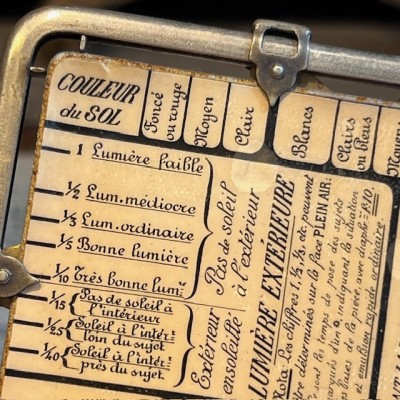 COULEUR
du SOL
Foncé
ou rouge
Moyen
Clair
Blancs
Clairs
ou bleus
Moyens
1 Lumière faible
1/2 Lum. médiocre
1/3 Lum. ordinaire
1/5 Bonne lumière
1/10 Très bonne lum.
1/15 Pas de soleil à
l'intérieur
1/25 Soleil à l'intér.
loin du sujet
1/40 Soleil à l'intér.
près du sujet
Pas de soleil
à l'extérieur
Extérieur
ensoleillé
LUMIÈRE EXTÉRIEURE
Nota: Les chiffres 1. ½. ⅓. etc. peuvent
être déterminés sur la face PLEIN AIR:
sont les temps de pose des sujets
indiquant la situation
bases de la pièce avec diaph=
et émulsion rapide ordinaire.